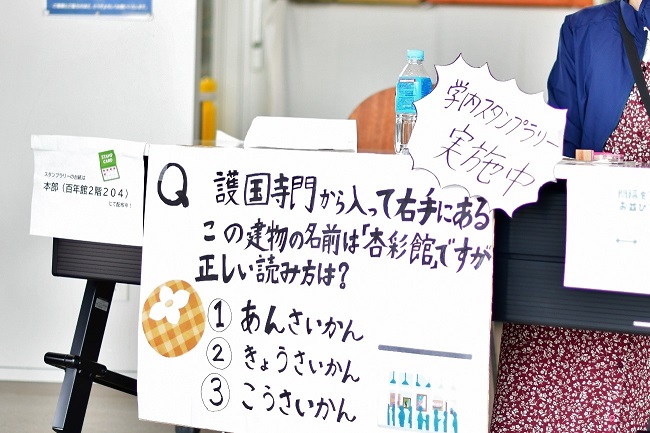 学内スタンプラリー
実施中
スタンプラリーの台紙は
本部(百年館2階204)
にて配布中!
STAMP CARD
Q 護国寺門から入って右手にある
この建物の名前は「杏彩館」ですが
正しい読み方は?
① あんさいかん
② きょうさいかん
③ こうさいかん